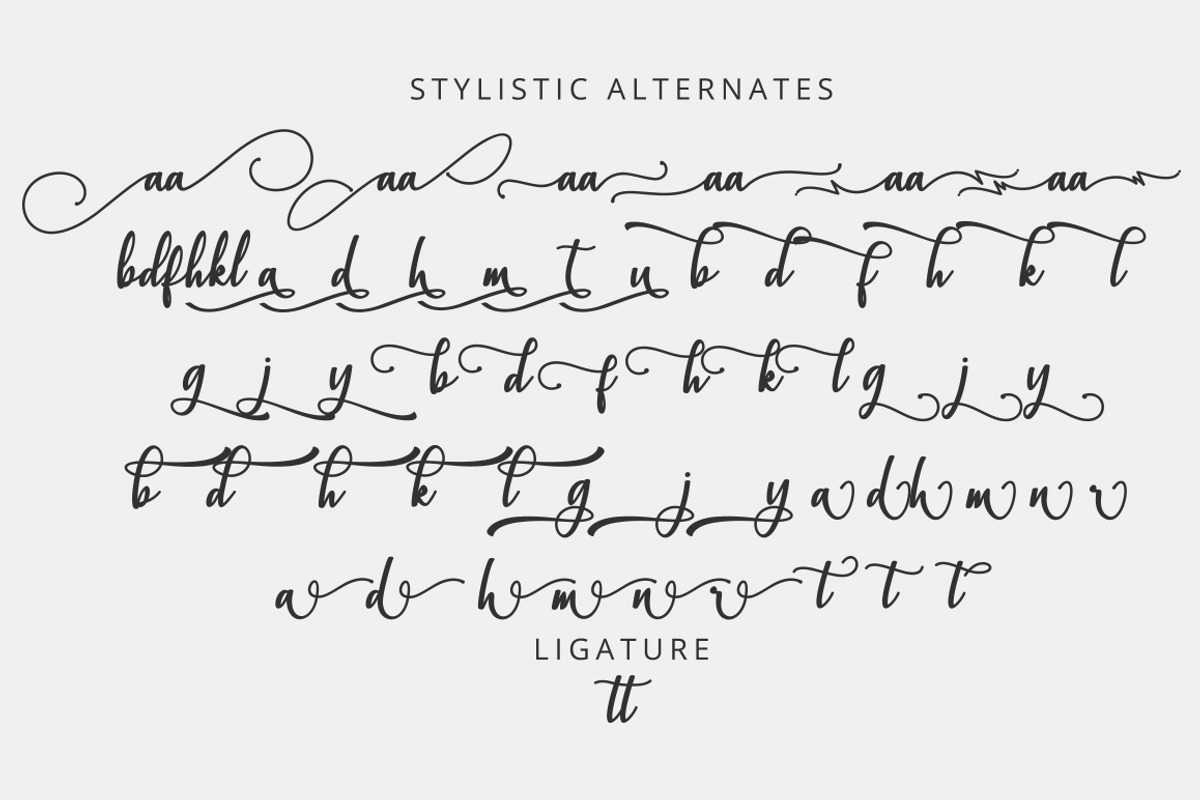 STYLISTIC ALTERNATES
aa aa aa aa aa aa
bdfhkl a d h m t u b d f h k l
g j y b d f h k l g j y
b d h k l g j y a d h m n r
a d h m n r t t t
LIGATURE
tt